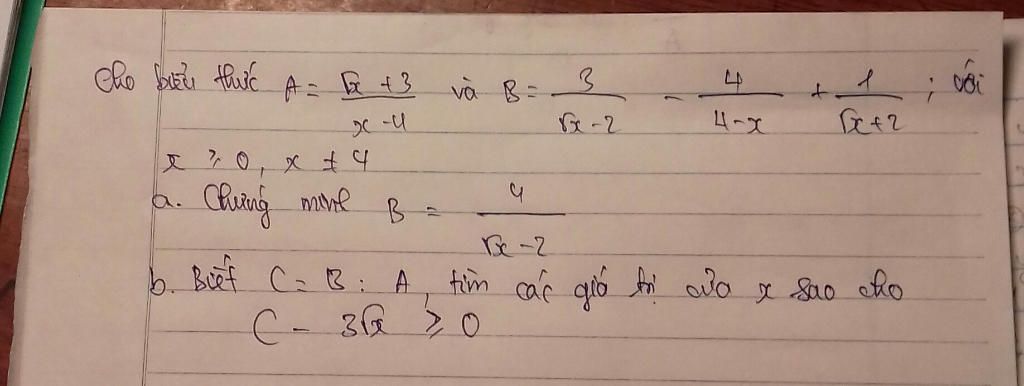 Cho biểu thức A = (√x + 3)/(x - 4) và B = 3/(√x - 2) - 4/(4 - x) + 1/(√x + 2) ; với
x ≥ 0, x ≠ 4
a. Chứng minh B = 4/(√x - 2)
b. Biết C = B : A, tìm các giá trị của x sao cho
C - 3√x ≥ 0